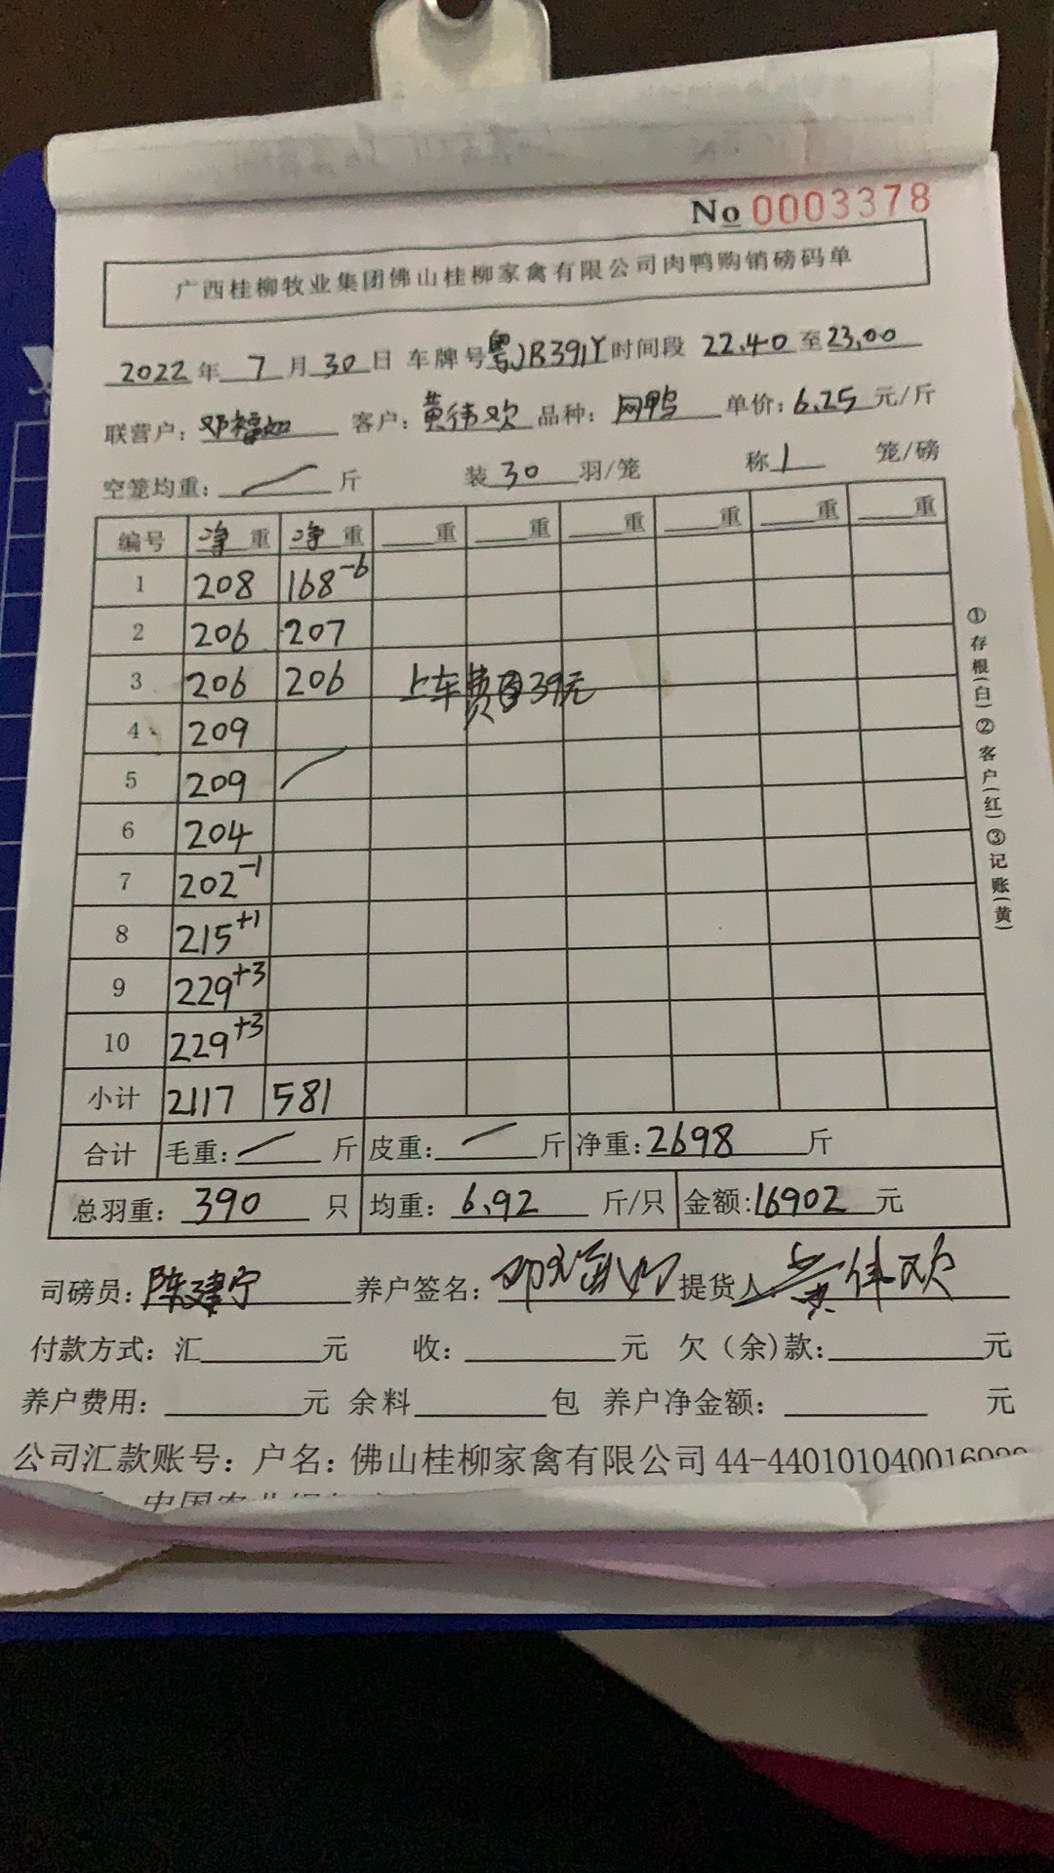 No 0003378
广西桂柳牧业集团佛山桂柳家禽有限公司肉鸭购销磅码单
2022年 7月30日 车牌号粤JR391Y时间段 22.40至23.00
联营户：邓福如 客户：黄伟欢 品种：网鸭 单价：6.25元/斤
空笼均重： 斤 装30羽/笼 称1笼/磅
编号 净重 净重 重 重 重 重 重 重
1 208 168-6
2 206 207
3 206 206 上车费39元
4 209
5 209
6 204
7 202-1
8 215+1
9 229+3
10 229+3
小计 2117 581
合计 毛重： 斤 皮重： 斤 净重：2698斤
总羽重：390只 均重：6.92斤/只 金额：16902元
司磅员：陈建宁 养户签名：邓福如 提货人 黄伟欢
付款方式：汇 元 收： 元 欠（余）款： 元
养户费用： 元 余料 包 养户净金额： 元
公司汇款账号：户名：佛山桂柳家禽有限公司44-440101040016
中国农业银行
①存根（白）②客户（红）③记账（黄）